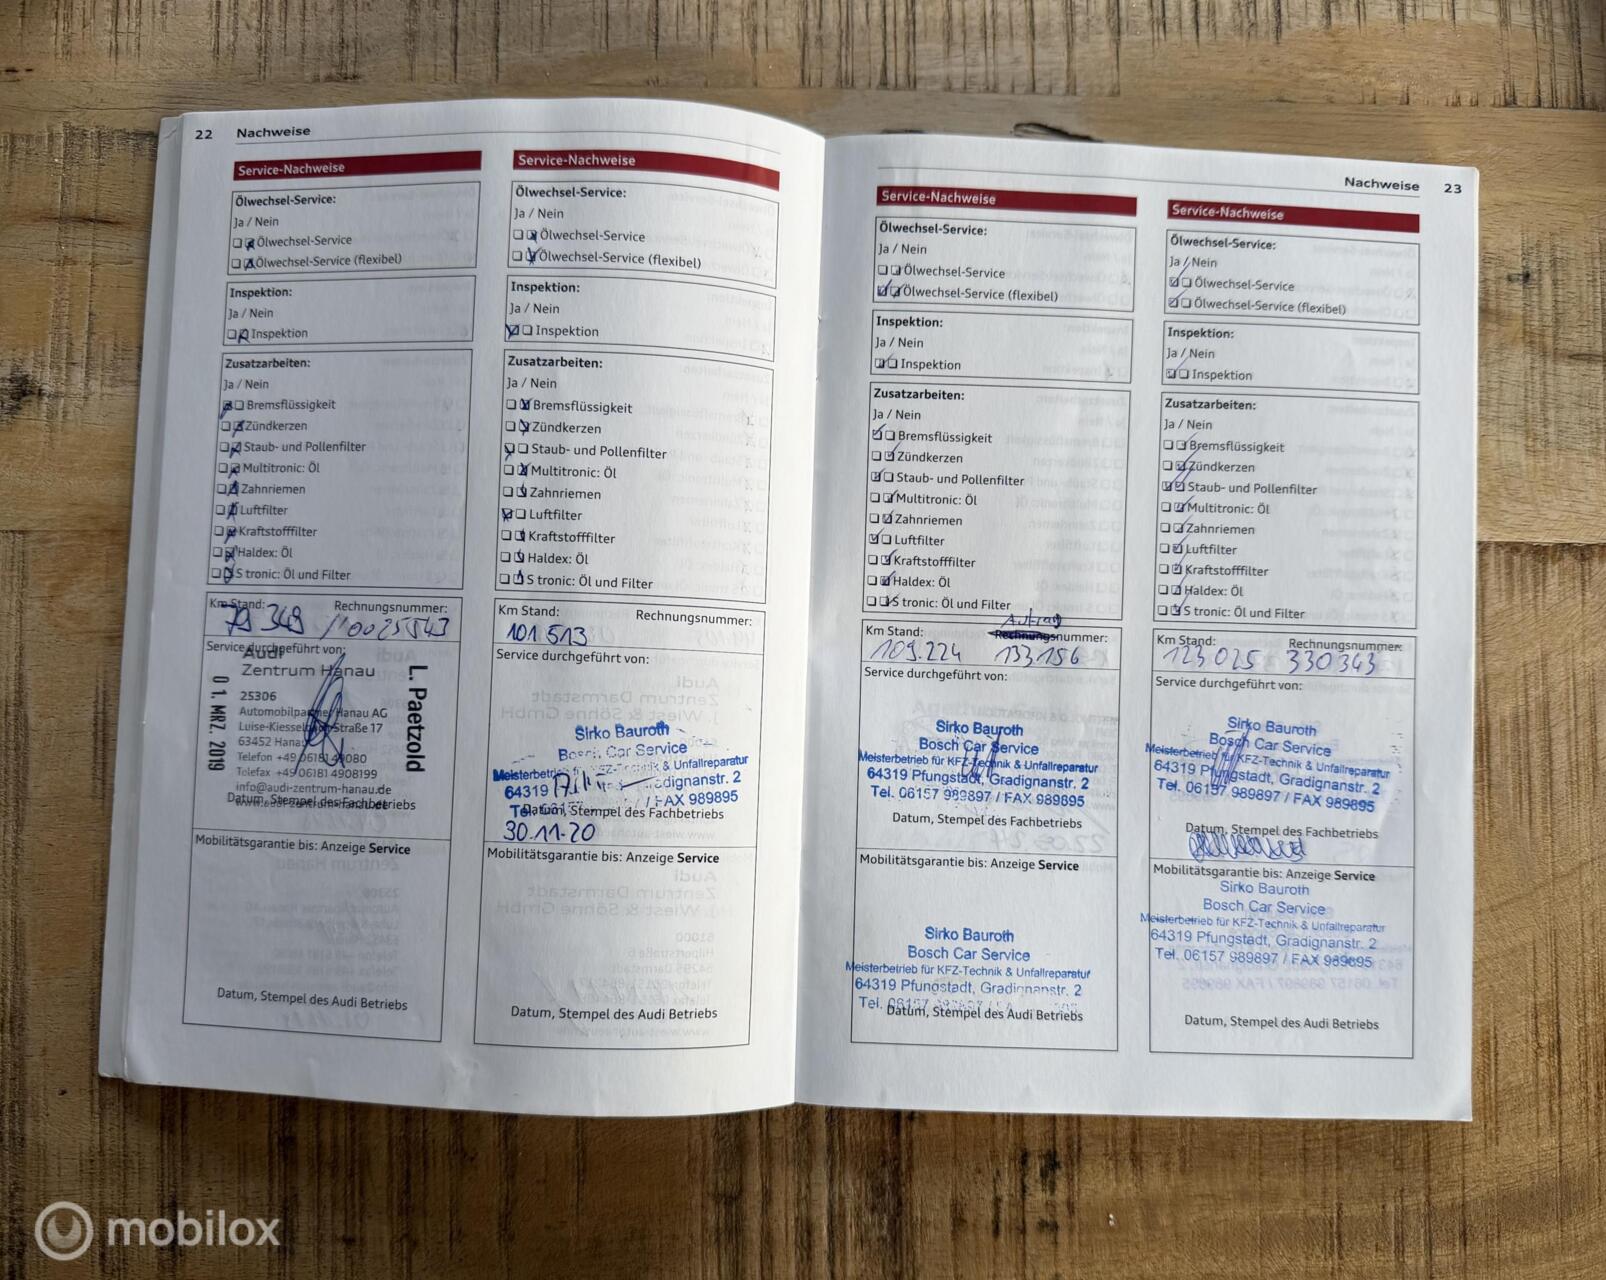 22 Nachweise
Service-Nachweise
Ölwechsel-Service:
Ja / Nein
Ölwechsel-Service
Ölwechsel-Service (flexibel)
Inspektion:
Ja / Nein
Inspektion
Zusatzarbeiten:
Ja / Nein
Bremsflüssigkeit
Zündkerzen
Staub- und Pollenfilter
Multitronic: Öl
Zahnriemen
Luftfilter
Kraftstofffilter
Haldex: Öl
S tronic: Öl und Filter
Km Stand: Rechnungsnummer:
79 349
Service durchgeführt von:
Audi
Zentrum Hanau
25306
Automobilpartner Hanau AG
Luise-Kiesselbach-Straße 17
63452 Hanau
Telefon +49 6181 49080
Telefax +49 6181 4908199
info@audi-zentrum-hanau.de
01. MRZ. 2019
L. Paetzold
Datum, Stempel des Fachbetriebs
Mobilitätsgarantie bis: Anzeige Service
Datum, Stempel des Audi Betriebs
Service-Nachweise
Ölwechsel-Service:
Ja / Nein
Ölwechsel-Service
Ölwechsel-Service (flexibel)
Inspektion:
Ja / Nein
Inspektion
Zusatzarbeiten:
Ja / Nein
Bremsflüssigkeit
Zündkerzen
Staub- und Pollenfilter
Multitronic: Öl
Zahnriemen
Luftfilter
Kraftstofffilter
Haldex: Öl
S tronic: Öl und Filter
Km Stand: Rechnungsnummer:
101 513
Service durchgeführt von:
Sirko Bauroth
Bosch Car Service
Meisterbetrieb & Unfallreparatur
64319 Gradignanstr. 2
Tel. / FAX 989895
Datum, Stempel des Fachbetriebs
30.11.20
Mobilitätsgarantie bis: Anzeige Service
Datum, Stempel des Audi Betriebs
Nachweise 23
Service-Nachweise
Ölwechsel-Service:
Ja / Nein
Ölwechsel-Service
Ölwechsel-Service (flexibel)
Inspektion:
Ja / Nein
Inspektion
Zusatzarbeiten:
Ja / Nein
Bremsflüssigkeit
Zündkerzen
Staub- und Pollenfilter
Multitronic: Öl
Zahnriemen
Luftfilter
Kraftstofffilter
Haldex: Öl
S tronic: Öl und Filter
Auftrag
Km Stand: Rechnungsnummer:
109.224 133156
Service durchgeführt von:
Sirko Bauroth
Bosch Car Service
Meisterbetrieb für KFZ-Technik & Unfallreparatur
64319 Pfungstadt, Gradignanstr. 2
Tel. 06157 989897 / FAX 989895
Datum, Stempel des Fachbetriebs
Mobilitätsgarantie bis: Anzeige Service
Sirko Bauroth
Bosch Car Service
Meisterbetrieb für KFZ-Technik & Unfallreparatur
64319 Pfungstadt, Gradignanstr. 2
Tel. 06157
Datum, Stempel des Audi Betriebs
Service-Nachweise
Ölwechsel-Service:
Ja / Nein
Ölwechsel-Service
Ölwechsel-Service (flexibel)
Inspektion:
Ja / Nein
Inspektion
Zusatzarbeiten:
Ja / Nein
Bremsflüssigkeit
Zündkerzen
Staub- und Pollenfilter
Multitronic: Öl
Zahnriemen
Luftfilter
Kraftstofffilter
Haldex: Öl
S tronic: Öl und Filter
Km Stand: Rechnungsnummer:
123 025 330343
Service durchgeführt von:
Sirko Bauroth
Bosch Car Service
Meisterbetrieb für KFZ-Technik & Unfallreparatur
64319 Pfungstadt, Gradignanstr. 2
Tel. 06157 989897 / FAX 989895
Datum, Stempel des Fachbetriebs
Mobilitätsgarantie bis: Anzeige Service
Sirko Bauroth
Bosch Car Service
Meisterbetrieb für KFZ-Technik & Unfallreparatur
64319 Pfungstadt, Gradignanstr. 2
Tel. 06157 989897 / FAX 989895
Datum, Stempel des Audi Betriebs
mobilox